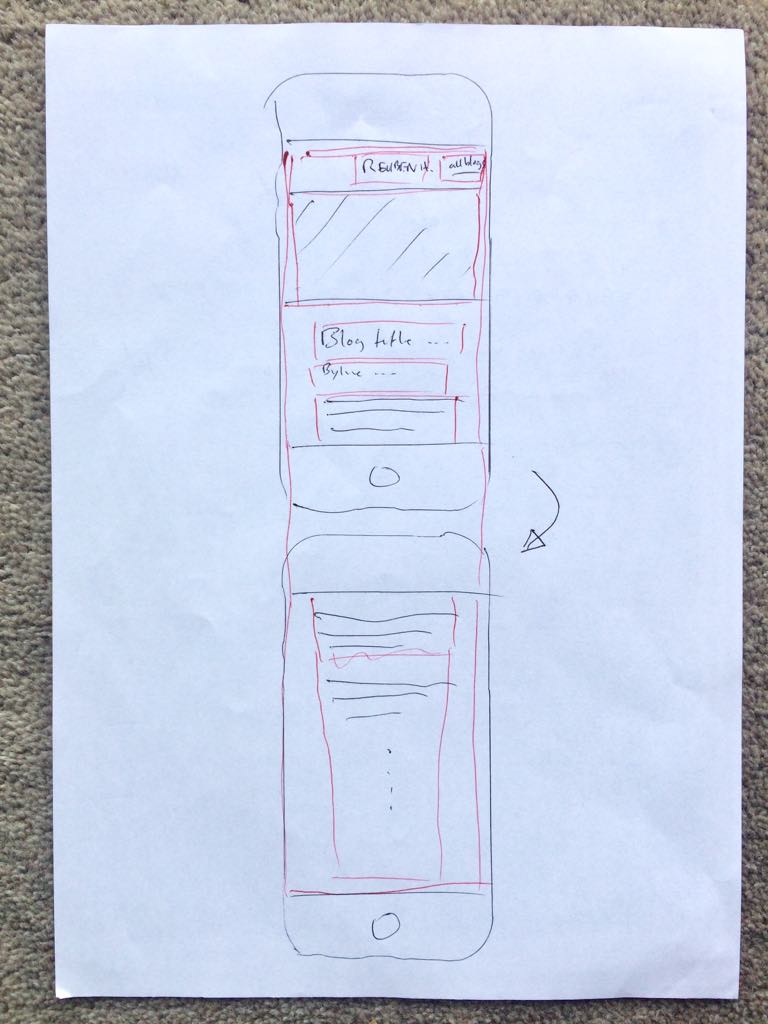 REUBEN H. all blogs
Blog title ---
Byline ---